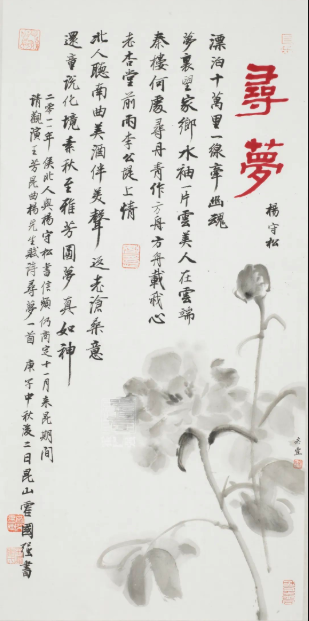 尋夢
楊守松
漂泊十萬里一線牽幽魂
夢裏望家鄉水袖一片雲美人在雲端
秦樓何處尋丹青作方舟方舟載我心
老杏堂前雨李公説上情
北人聽南曲美酒伴美聲返老滄桑意
還童説化境素秋至雅芳園夢真如神
二零一一年侯北人與楊守松書信頻仍商定十一月来昆期間
請觀演王芳昆曲楊先生賦詩尋夢一首
庚子中秋後二日昆山霍國強書